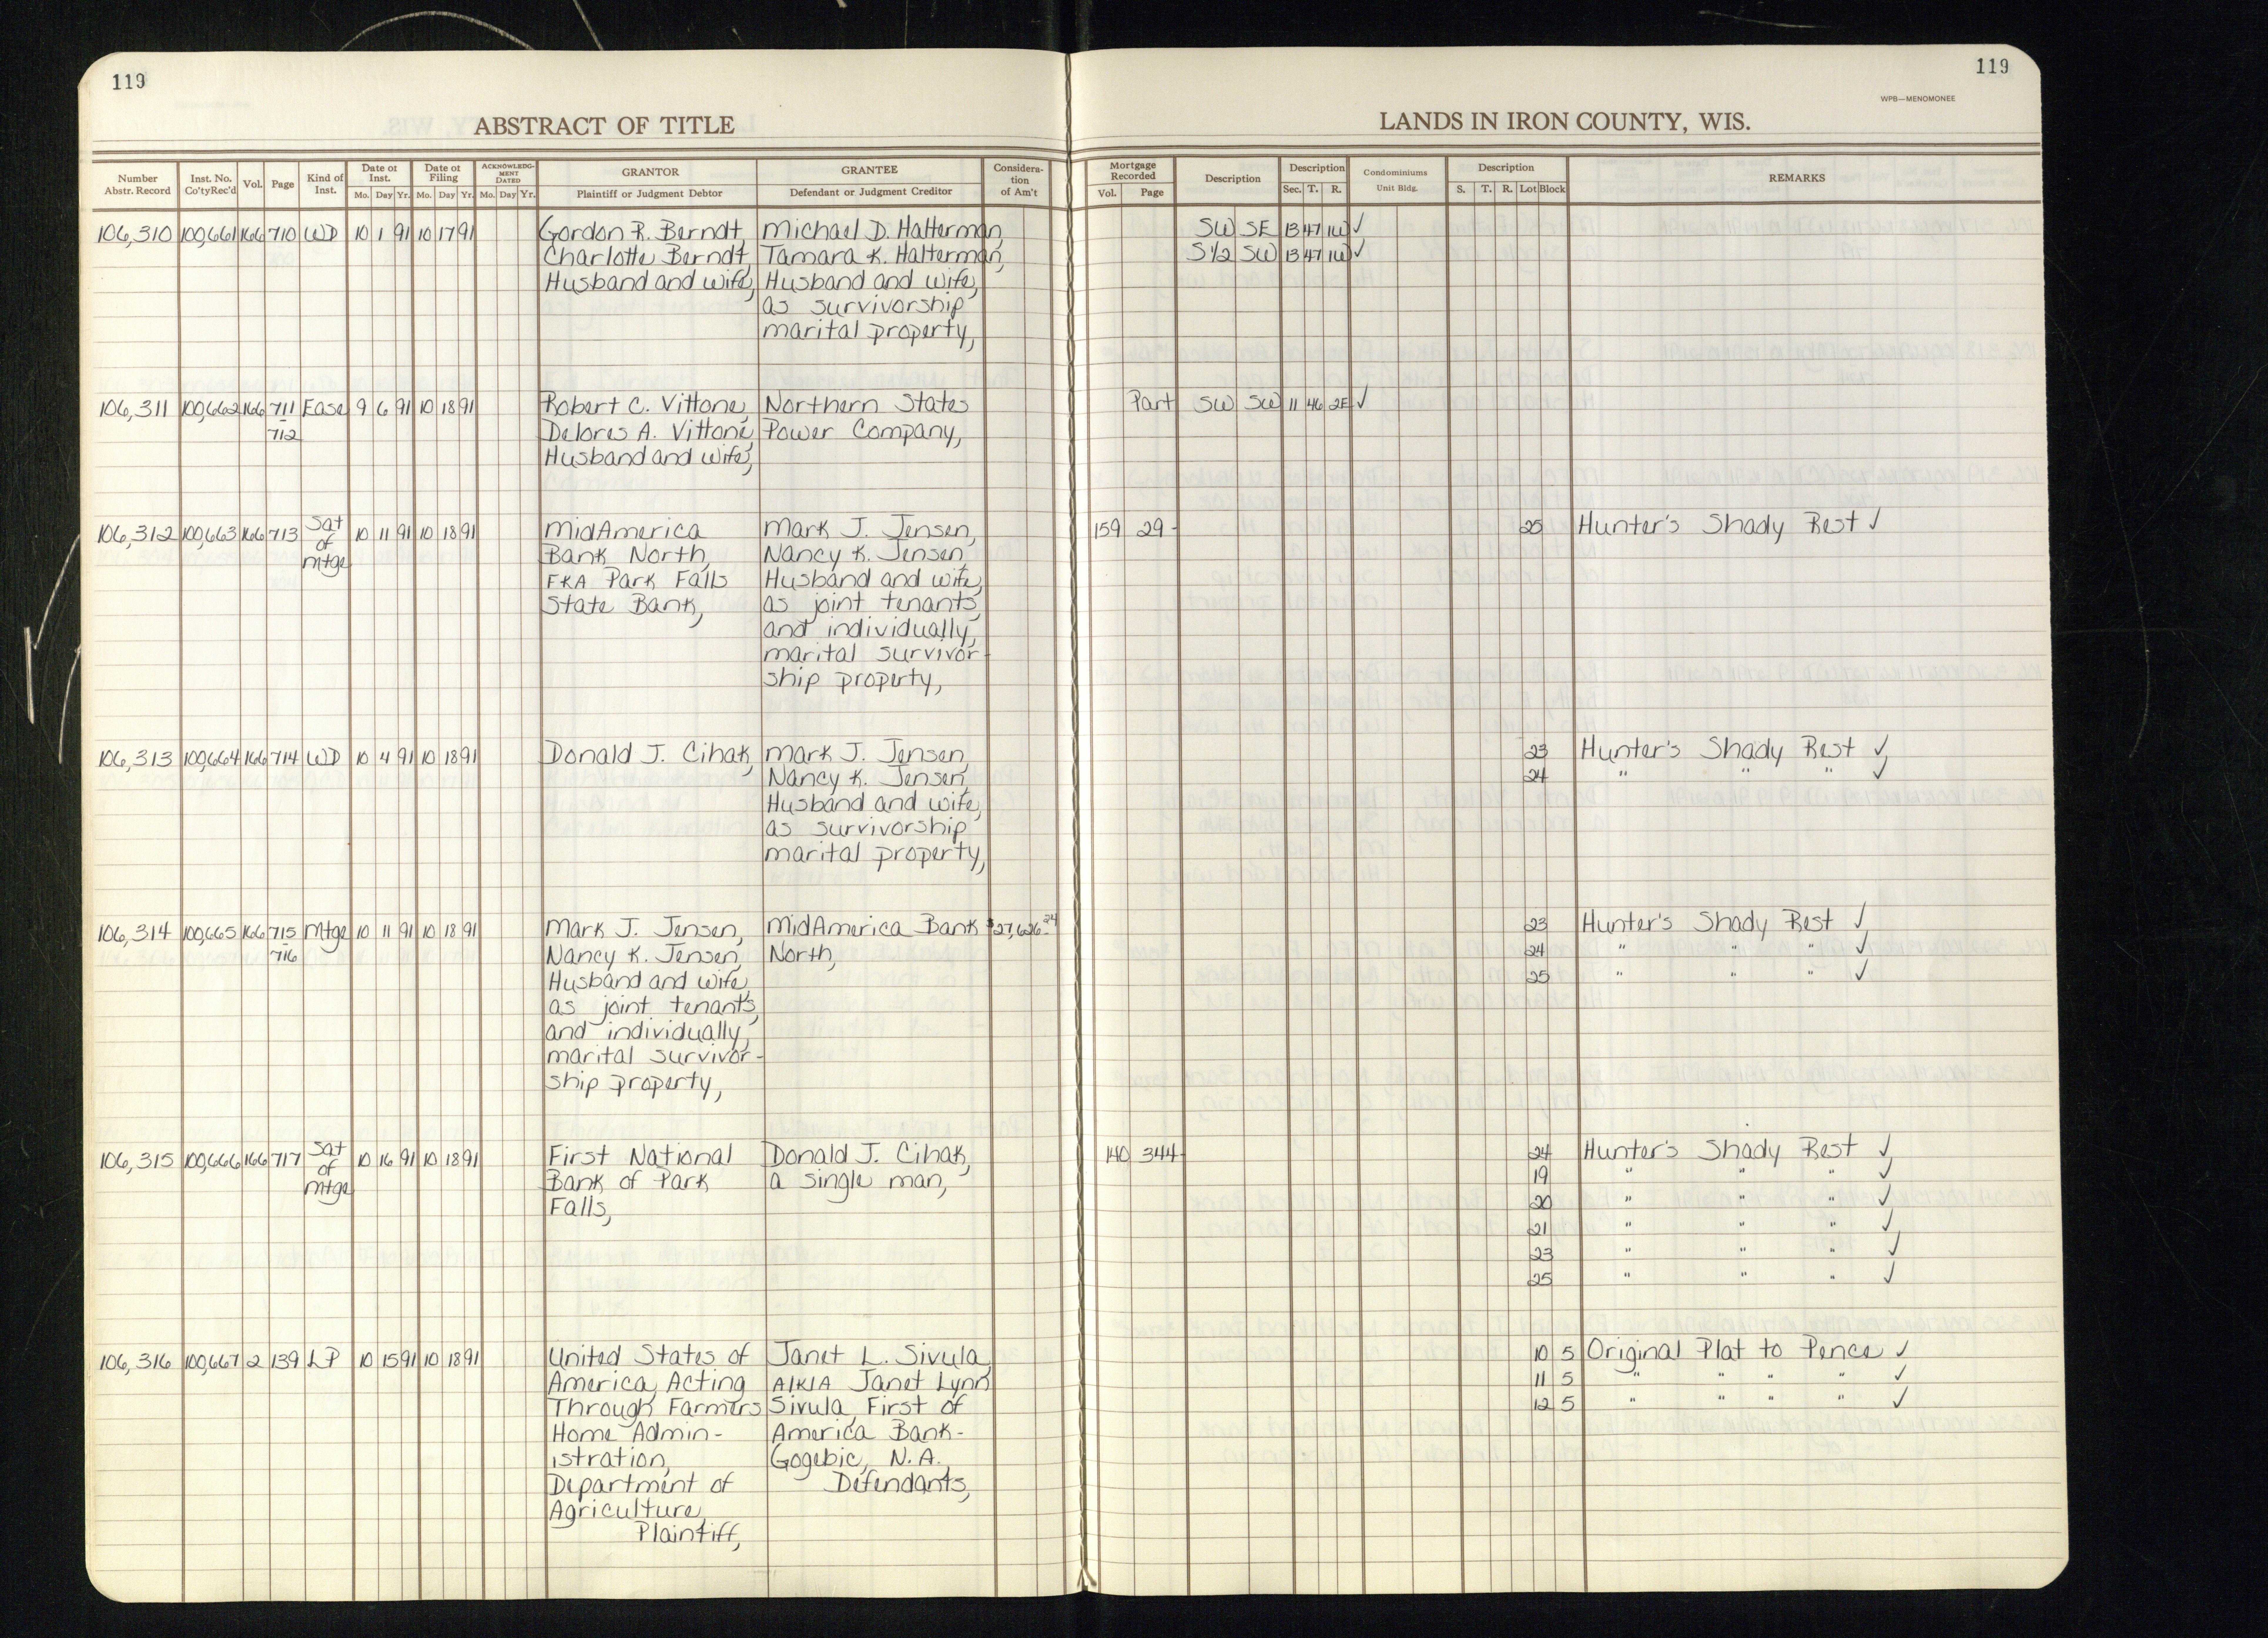 119
119
WPB—MENOMONEE
ABSTRACT OF TITLE
LANDS IN IRON COUNTY, WIS.
Number Abstr. Record | Inst. No. Co'tyRec'd | Vol. | Page | Kind of Inst. | Date of Inst. Mo. Day Yr. | Date of Filing Mo. Day Yr. | ACKNOWLEDGMENT DATED Mo. Day Yr. | GRANTOR Plaintiff or Judgment Debtor | GRANTEE Defendant or Judgment Creditor | Consideration of Am't | Mortgage Recorded Vol. Page | Description | Description Sec. T. R. | Condominiums Unit Bldg. | Description S. T. R. Lot Block | REMARKS
106,310 100,661 166 710 WD 10 1 91 10 17 91 Gordon R. Berndt, Michael D. Halterman, SW SE 13 47 1W ✓
Charlotte Berndt, Tamara K. Halterman, S1/2 SW 13 47 1W ✓
Husband and wife, Husband and wife,
as survivorship
marital property,
106,311 100,662 166 711 Ease 9 6 91 10 18 91 Robert C. Vittone, Northern States Part SW SW 11 46 2E ✓
-712 Delores A. Vittone, Power Company,
Husband and wife,
106,312 100,663 166 713 Sat of mtge 10 11 91 10 18 91 MidAmerica Mark J. Jensen, 159 29 25 Hunter's Shady Rest ✓
Bank North, Nancy K. Jensen,
FKA Park Falls Husband and wife,
State Bank, as joint tenants,
and individually,
marital survivor-
ship property,
106,313 100,664 166 714 WD 10 4 91 10 18 91 Donald J. Cihak, Mark J. Jensen, 23 Hunter's Shady Rest ✓
Nancy K. Jensen, 24 " " " ✓
Husband and wife,
as survivorship
marital property,
106,314 100,665 166 715 Mtge 10 11 91 10 18 91 Mark J. Jensen, MidAmerica Bank $27,626.24 23 Hunter's Shady Rest ✓
-716 Nancy K. Jensen, North, 24 " " " ✓
Husband and wife, 25 " " " ✓
as joint tenants,
and individually,
marital survivor-
ship property,
106,315 100,666 166 717 Sat of mtge 10 16 91 10 18 91 First National Donald J. Cihak, 140 344 24 Hunter's Shady Rest ✓
Bank of Park a single man, 19 " " " ✓
Falls, 20 " " " ✓
21 " " " ✓
23 " " " ✓
25 " " " ✓
106,316 100,667 2 139 LP 10 15 91 10 18 91 United States of Janet L. Sivula, 10 5 Original Plat to Pence ✓
America, Acting A/K/A Janet Lynn 11 5 " " " " ✓
Through Farmers Sivula, First of 12 5 " " " " ✓
Home Admin- America Bank-
istration, Gogebic, N.A.,
Department of Defendants,
Agriculture,
Plaintiff,